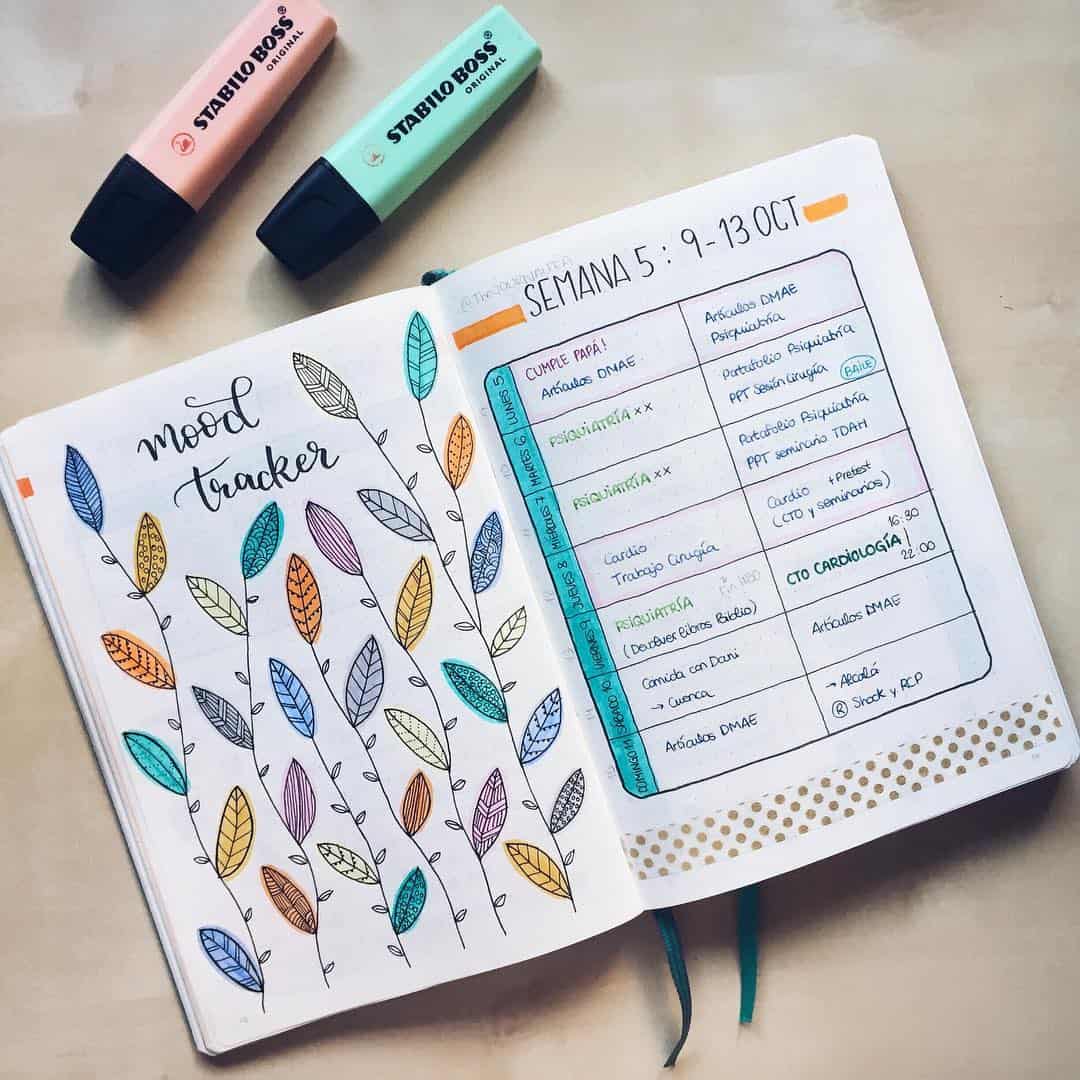 STABILO BOSS®
ORIGINAL
STABILO BOSS®
ORIGINAL
mood
tracker
SEMANA 5: 9-13 OCT
LUNES 5
CUMPLE PAPÁ!
Artículos DMAE
Artículos DMAE
Psiquiatría
MARTES 6
PSIQUIATRÍA xx
Portafolio Psiquiatría
PPT Sesión Cirugía BAILE
MIÉRCOLES 7
PSIQUIATRÍA xx
Portafolio Psiquiatría
PPT seminario TDAH
JUEVES 8
Cardio
Trabajo Cirugía
Cardio + Pretest
(CTO y seminarios)
VIERNES 9
PSIQUIATRÍA
(Devolver libros Biblio)
CTO CARDIOLOGÍA
16:30
22:00
SÁBADO 10
Comida con Dani
→ Cuenca
Artículos DMAE
DOMINGO 11
Artículos DMAE
→ Alcalá
® Shock y RCP